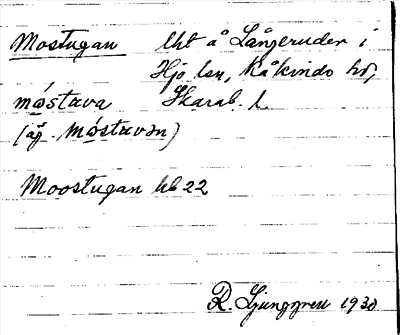 Mostugan lht å Långeruder i
Hjo lsn, Kåkinds hd,
móstava Skarab. l.
(äj. móstavən)
Moostugan hb 22
R. Ljunggren 1930